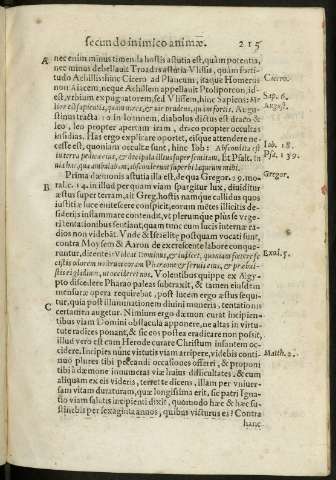 secundo inimico animæ. 215
A nec enim minus timenda hostis astutia est, quàm potentia,
nec minus debellauit Troada astutia Vlissis, quàm fortitudo
Achillis: hinc Cicero ad Plancum, itaque Homerus Cicero.
non Aiacem, neque Achillem appellauit Ptoliporcon, id
est, vrbium expugnatorem, sed Vlissem, hinc Sapiens: Melior Sap. 6.
est sapientia, quàm vires, & vir prudens, quàm fortis. August. Augustinus
tracta. 10 in Ioannem, diabolus dictus est draco &
leo, leo propter apertam iram, draco propter occultas
insidias. Has ergo explicare oportet, eisque attendere necesse
est, quoniam occultæ sunt, hinc Iob: Abscondita est Iob. 18.
in terra pedica eius, & decipula illius super semitam. Et Psalt. in Psa. 139.
via hac, qua ambulabam, absconderunt superbi laqueum mihi.
Prima dæmonis astutia illa est, de qua Gregor. 29. mo- Gregor.
B rale. 14. in illud per quam viam spargitur lux, diuiditur
æstus super terram, ait Greg. hostis namque callidus quos
iustitiæ luce enitescere conspicit, eorum mẽtes illicitis desiderijs
inflammare contendit, vt plerumque plus se vrgeri
tentationibus sentiant, quàm tunc cum lucis internæ radios
non videbãt. Vnde & Israelitæ postquam vocati sunt,
contra Moysem & Aaron de excrescente labore conqueruntur,
dicente: Videat Dominus, & iudicet, quoniam fœtere fecistis Exod. 5.
odorem nostrum coram Pharaone & seruis eius, & præbuistis
ei gladium, vt occideret nos. Volentibus quippe ex Ægypto
discedere Pharao paleas subtraxit, & tamen eiusdem
mensuræ opera requirebat, post lucem ergo æstus sequitur,
quia post illuminationem diuini muneris, tentationis
C certamen augetur. Nimium ergo dæmon curat incipientibus
viam Domini obstacula apponere, ne altas in virtute
radices ponant, & sic eos postea eradicare non possit,
illud vero est cum Herode curare Christum infantem occidere. Matth. 2.
Incipies nunc virtutis viam arripere, videbis continuò
plures tibi peccandi occasiones offerri, & proponi
tibi à dæmone innumeras viæ huius difficultates, & cum
aliquam ex eis videris, terret te dicens, illam per vniuersam
vitam duraturam, quæ longissima erit, sic patri Ignatio
viam salutis incipienti dixit, quomodo hæc & hæc sustinebis
per sexaginta annos, quibus victurus es? Contra
hanc